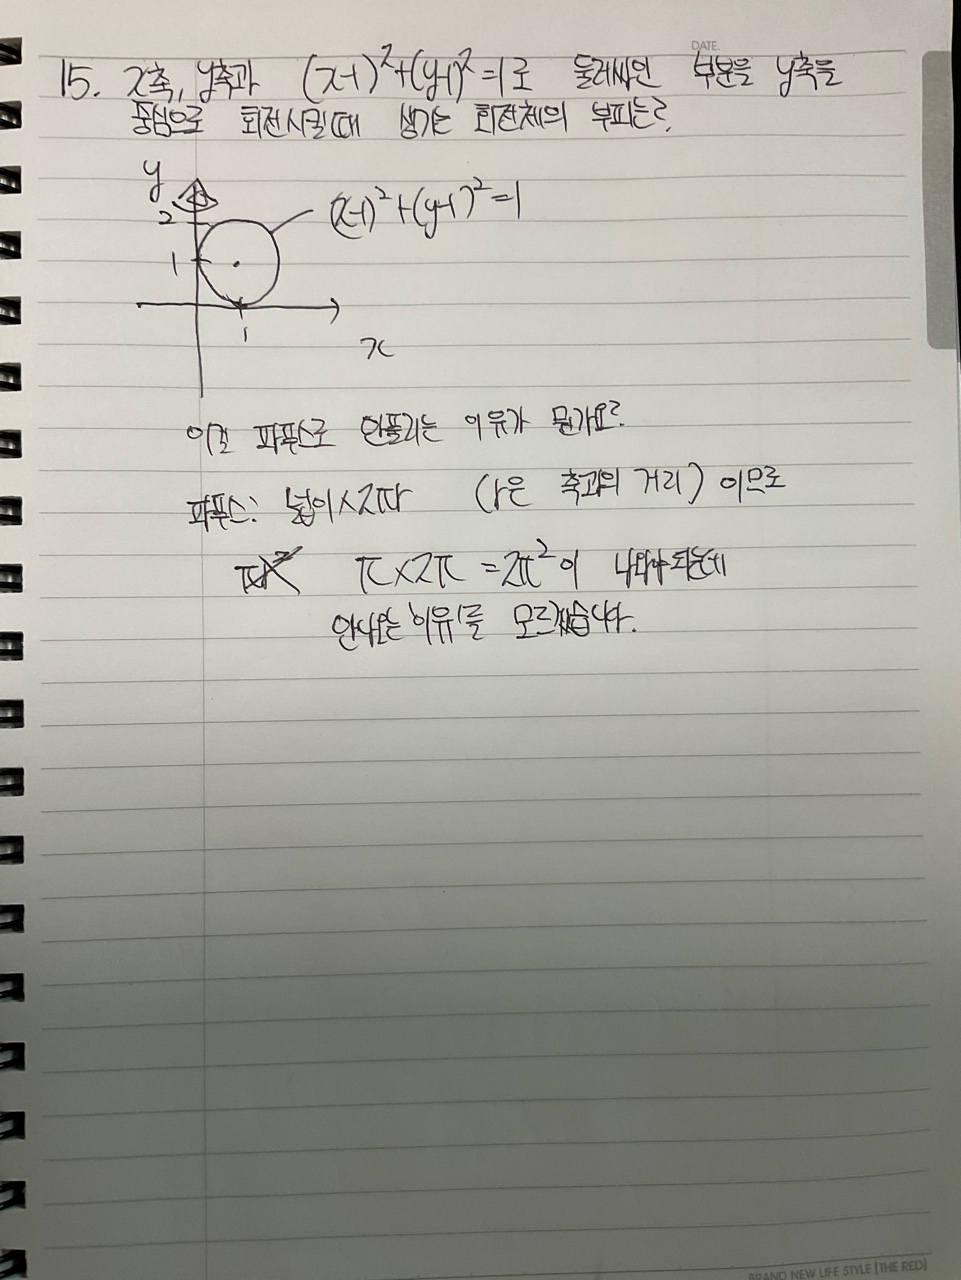 DATE.
15. x축, y축과 (x-1)²+(y-1)²=1로 둘러싸인 부분을 y축을
중심으로 회전시킬때 생기는 회전체의 부피는?
y
2
(x-1)²+(y-1)²=1
1
1
x
이걸 파푸스로 안풀리는 이유가 뭔가요?
파푸스: 넓이×2πr (r은 축과의 거리) 이므로
π×2π =2π²이 나와야 되는데
안나오는 이유를 모르겠습니다.
BRAND NEW LIFE STYLE [THE RED]